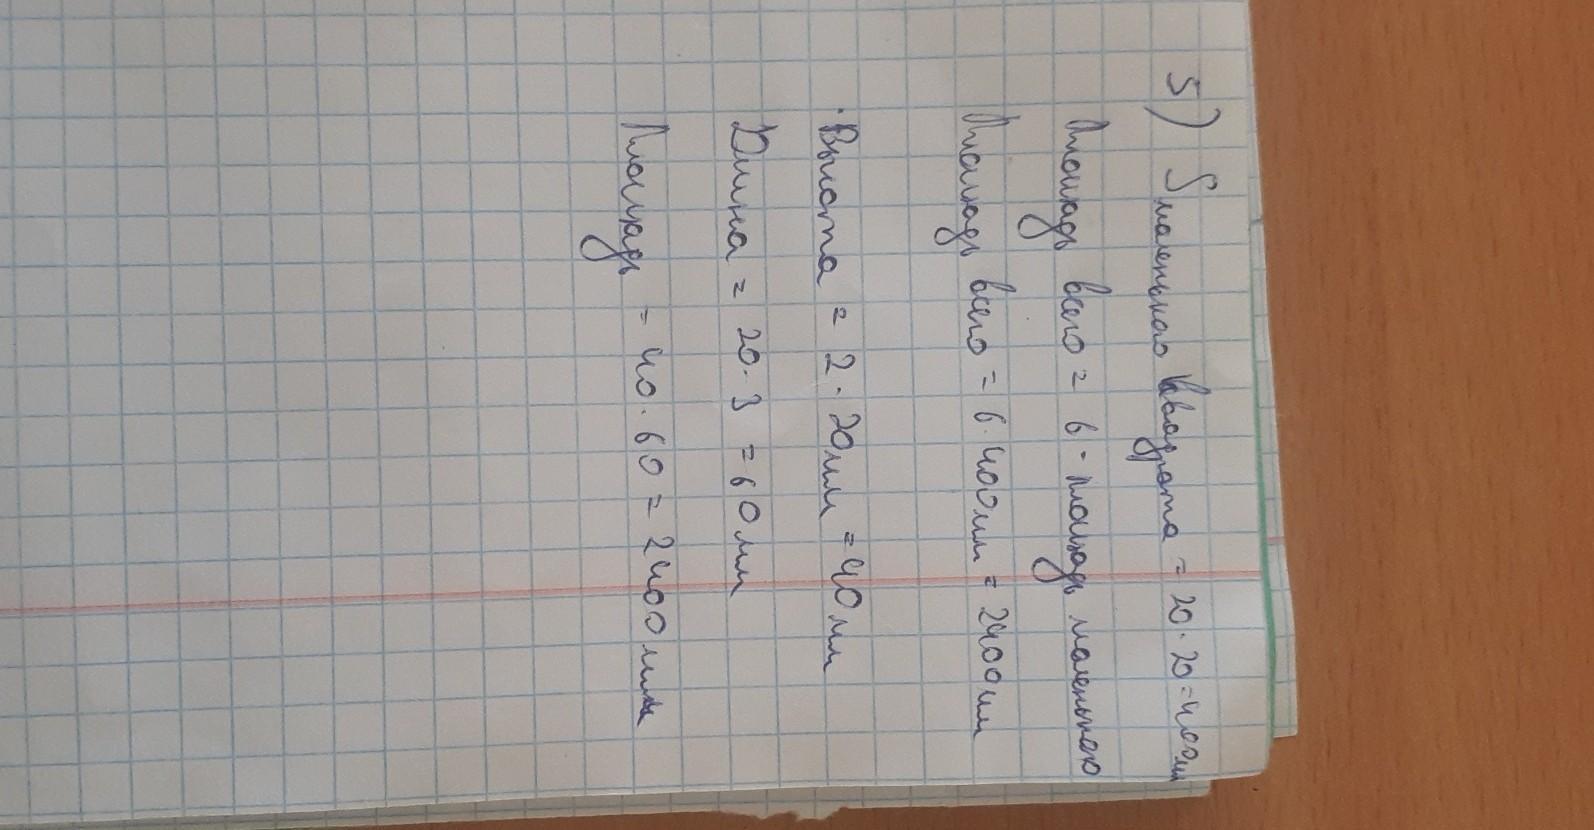 5) S маленького квадрата = 20 · 20 = 400мм
Площадь всего = 6 · площадь маленького
Площадь всего = 6 · 400мм = 2400мм
Высота = 2 · 20мм = 40мм
Длина = 20 · 3 = 60мм
Площадь = 40 · 60 = 2400мм